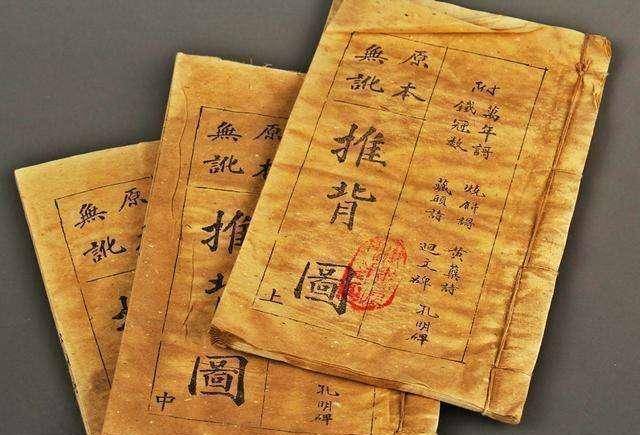 附
萬年謌 燒餅謌 黃蘗詩 孔明碑
鐵冠数 藏頭詩 迴文碑
原本
無訛
推背圖
上
孔明碑
原本
無訛
推背圖
中
原本
無訛